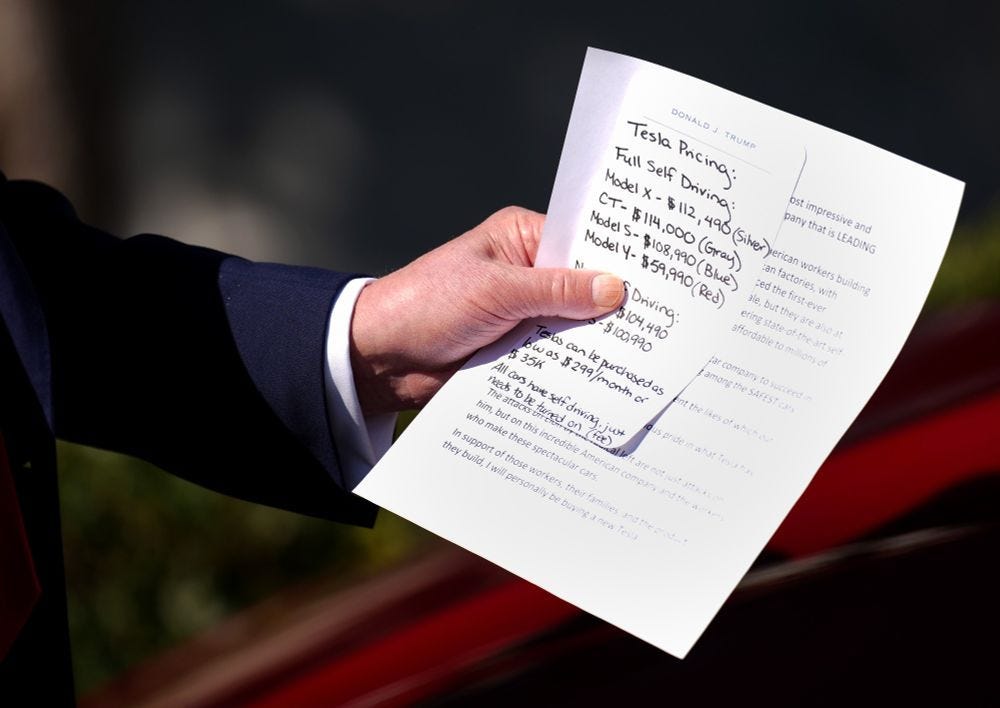 DONALD J. TRUMP
Tesla Pricing:
Full Self Driving:
Model X - $112,490 (Silver)
CT - $114,000 (Gray)
Model S - $108,990 (Blue)
Model Y - $59,990 (Red)
Driving:
$104,490
S - $100,990
Teslas can be purchased as
low as $299/month or
$35K
All cars have self driving, just
needs to be turned on (fee)
ost impressive and
pany that is LEADING
erican workers building
can factories, with
ced the first-ever
ale, but they are also at
ering state-of-the-art self
affordable to millions of
car company to succeed in
among the SAFEST cars
ent the likes of which our
ous pride in what Tesla has
The attacks on al left are not just attacks on
him, but on this incredible American company and the workers
who make these spectacular cars.
In support of those workers, their families, and the product
they build, I will personally be buying a new Tesla